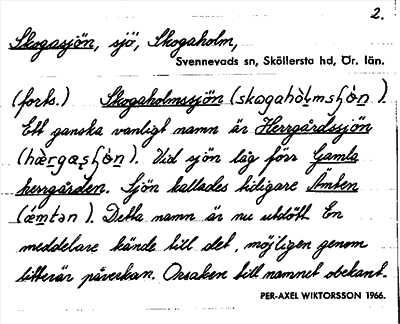 2.
Skogasjön, sjö, Skogaholm,
Svennevads sn, Sköllersta hd, Ör. län.
(forts.) Skogaholmssjön (skogahòl̥msʃö̀n).
Ett ganska vanligt namn är Herrgårdssjön
(hæ̀rgɑʂʃö̀n). Vid sjön låg förr Gamla
herrgården. Sjön kallades tidigare Ämten
(ǽmtən). Detta namn är nu utdött. En
meddelare kände till det, möjligen genom
litterär påverkan. Orsaken till namnet obekant.
PER-AXEL WIKTORSSON 1966.